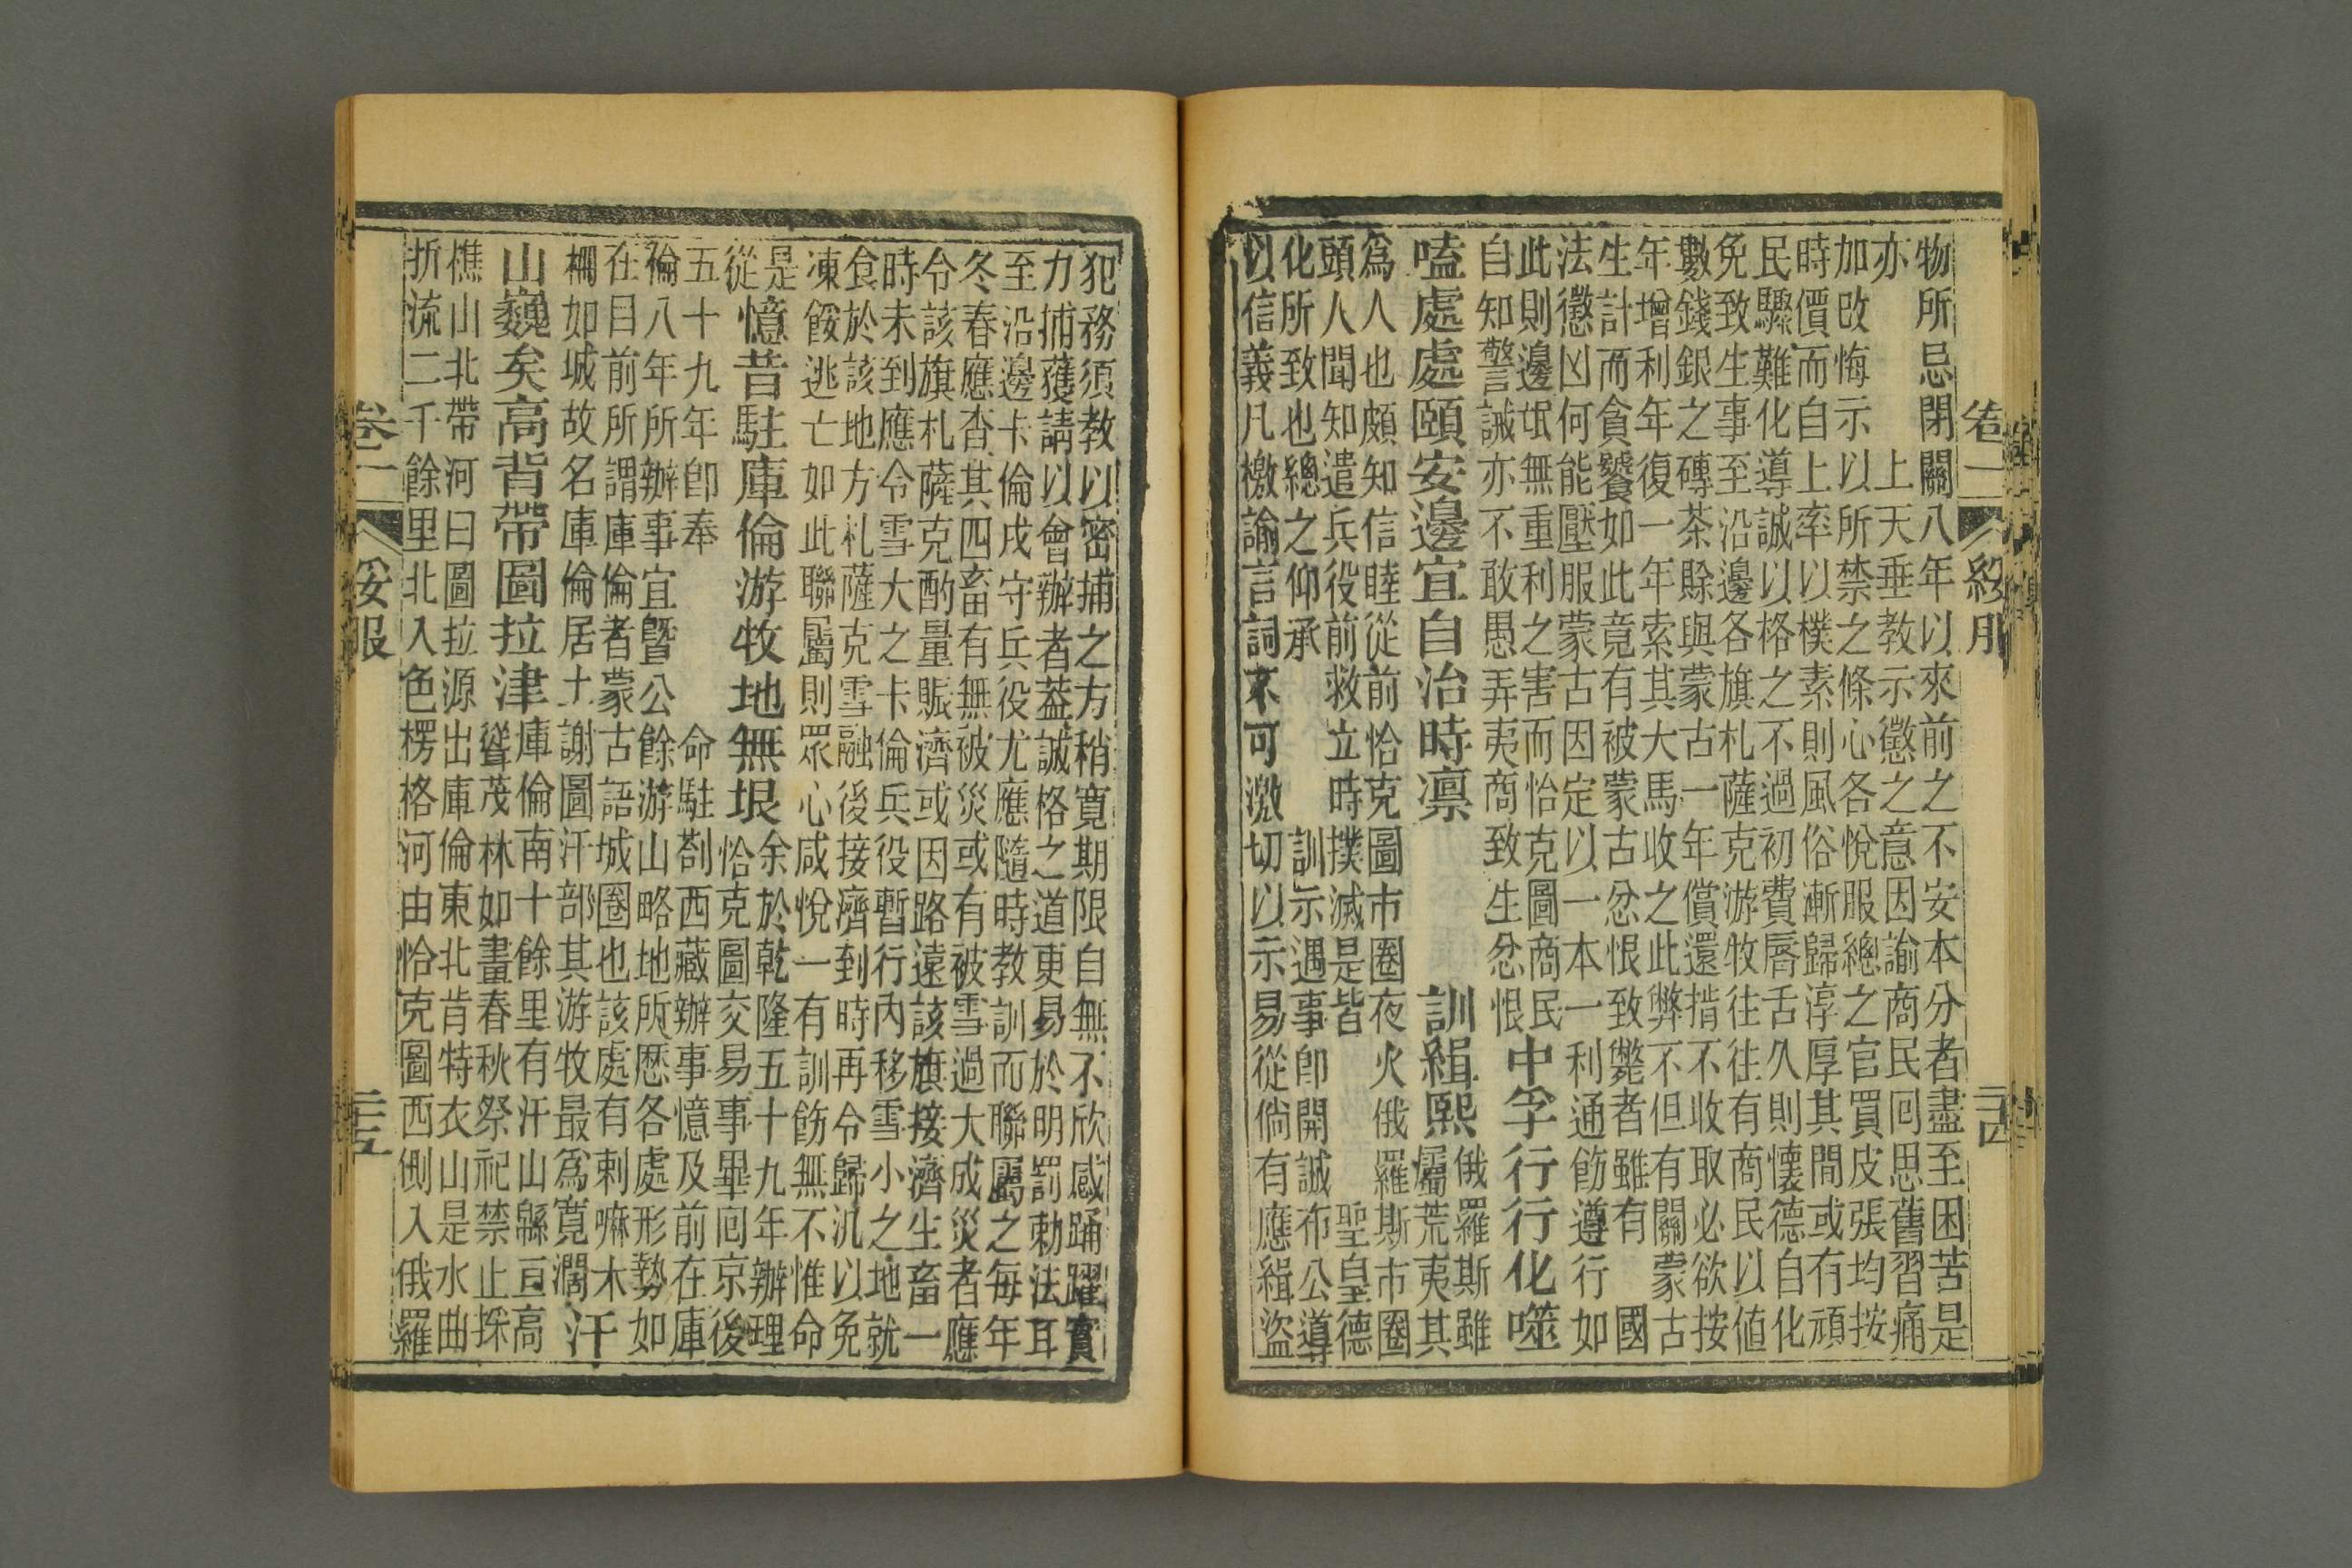 卷一
綏服
二十四
物所忌閉關八年以來前之不安本分者盡至困苦是
亦　上天垂教示懲之意因諭商民囘思舊習痛
加改悔示以所禁之條心各悅服總之官買皮張均按
時價而自上率以樸素則風俗漸歸淳厚其間或有頑
民驟難化導誠以格之不過初費唇舌久則懷德自化
免致生事至沿邊各旗札薩克游牧往往有商民以值
數錢銀之磚茶賒與蒙古一年償還揹不收取必欲按
年增利年復一年索其大馬收之此弊不但有關蒙古
生計而貪饕如此竟有被蒙古忿恨致斃者雖有　國
法懲凶何能壓服蒙古因定以一本一利通飭遵行如
此則邊氓無重利之害而恰克圖商民
自知警誡亦不敢愚弄夷商致生忿恨
中孚行行化噬
嗑處處頤安邊宜自治時凛　訓緝熙
俄羅斯雖
屬荒夷其
爲人也頗知信睦從前恰克圖市圈夜火俄羅斯市圈
頭人聞知遣兵役前救立時撲滅是皆　聖皇德
化所致也總之仰承　訓示遇事卽開誠布公導
以信義凡檄諭言詞不可激切以示易從倘有應緝盜
犯務須教以密捕之方稍寬期限自無不欣感踊躍實
力捕獲請以會辦者葢誠格之道更易於明罰勅法耳
至沿邊卡倫戍守兵役尤應隨時教訓而聯屬之每年
冬春應查其四畜有無被災或有被雪過大成災者應
令該旗札薩克酌量賑濟或因路遠該旗接濟生畜一
時未到應令雪大之卡倫兵役暫行內移雪小之地就
食於該地方札薩克雪融後接濟到時再令歸汛以免
凍餒逃亡如此聯屬則眾心咸悅一有訓飭無不惟命
是
從
憶昔駐庫倫游牧地無垠
余於乾隆五十九年辦理
恰克圖交易事畢囘京後
五十九年卽奉　命駐劄西藏辦事憶及前在庫
倫八年所辦事宜曁公餘游山略地所歷各處形勢如
在目前所謂庫倫者蒙古語城圈也該處有剌嘛木
柵如城故名庫倫居土謝圖汗部其游牧最爲寬濶
汗
山巍矣高背帶圖拉津
庫倫南十餘里有汗山緜亘高
聳茂林如畫春秋祭祀禁止採
樵山北帶河曰圖拉源出庫倫東北肯特衣山是水曲
折流二千餘里北入色楞格河由恰克圖西側入俄羅
卷一
綏服
二十五